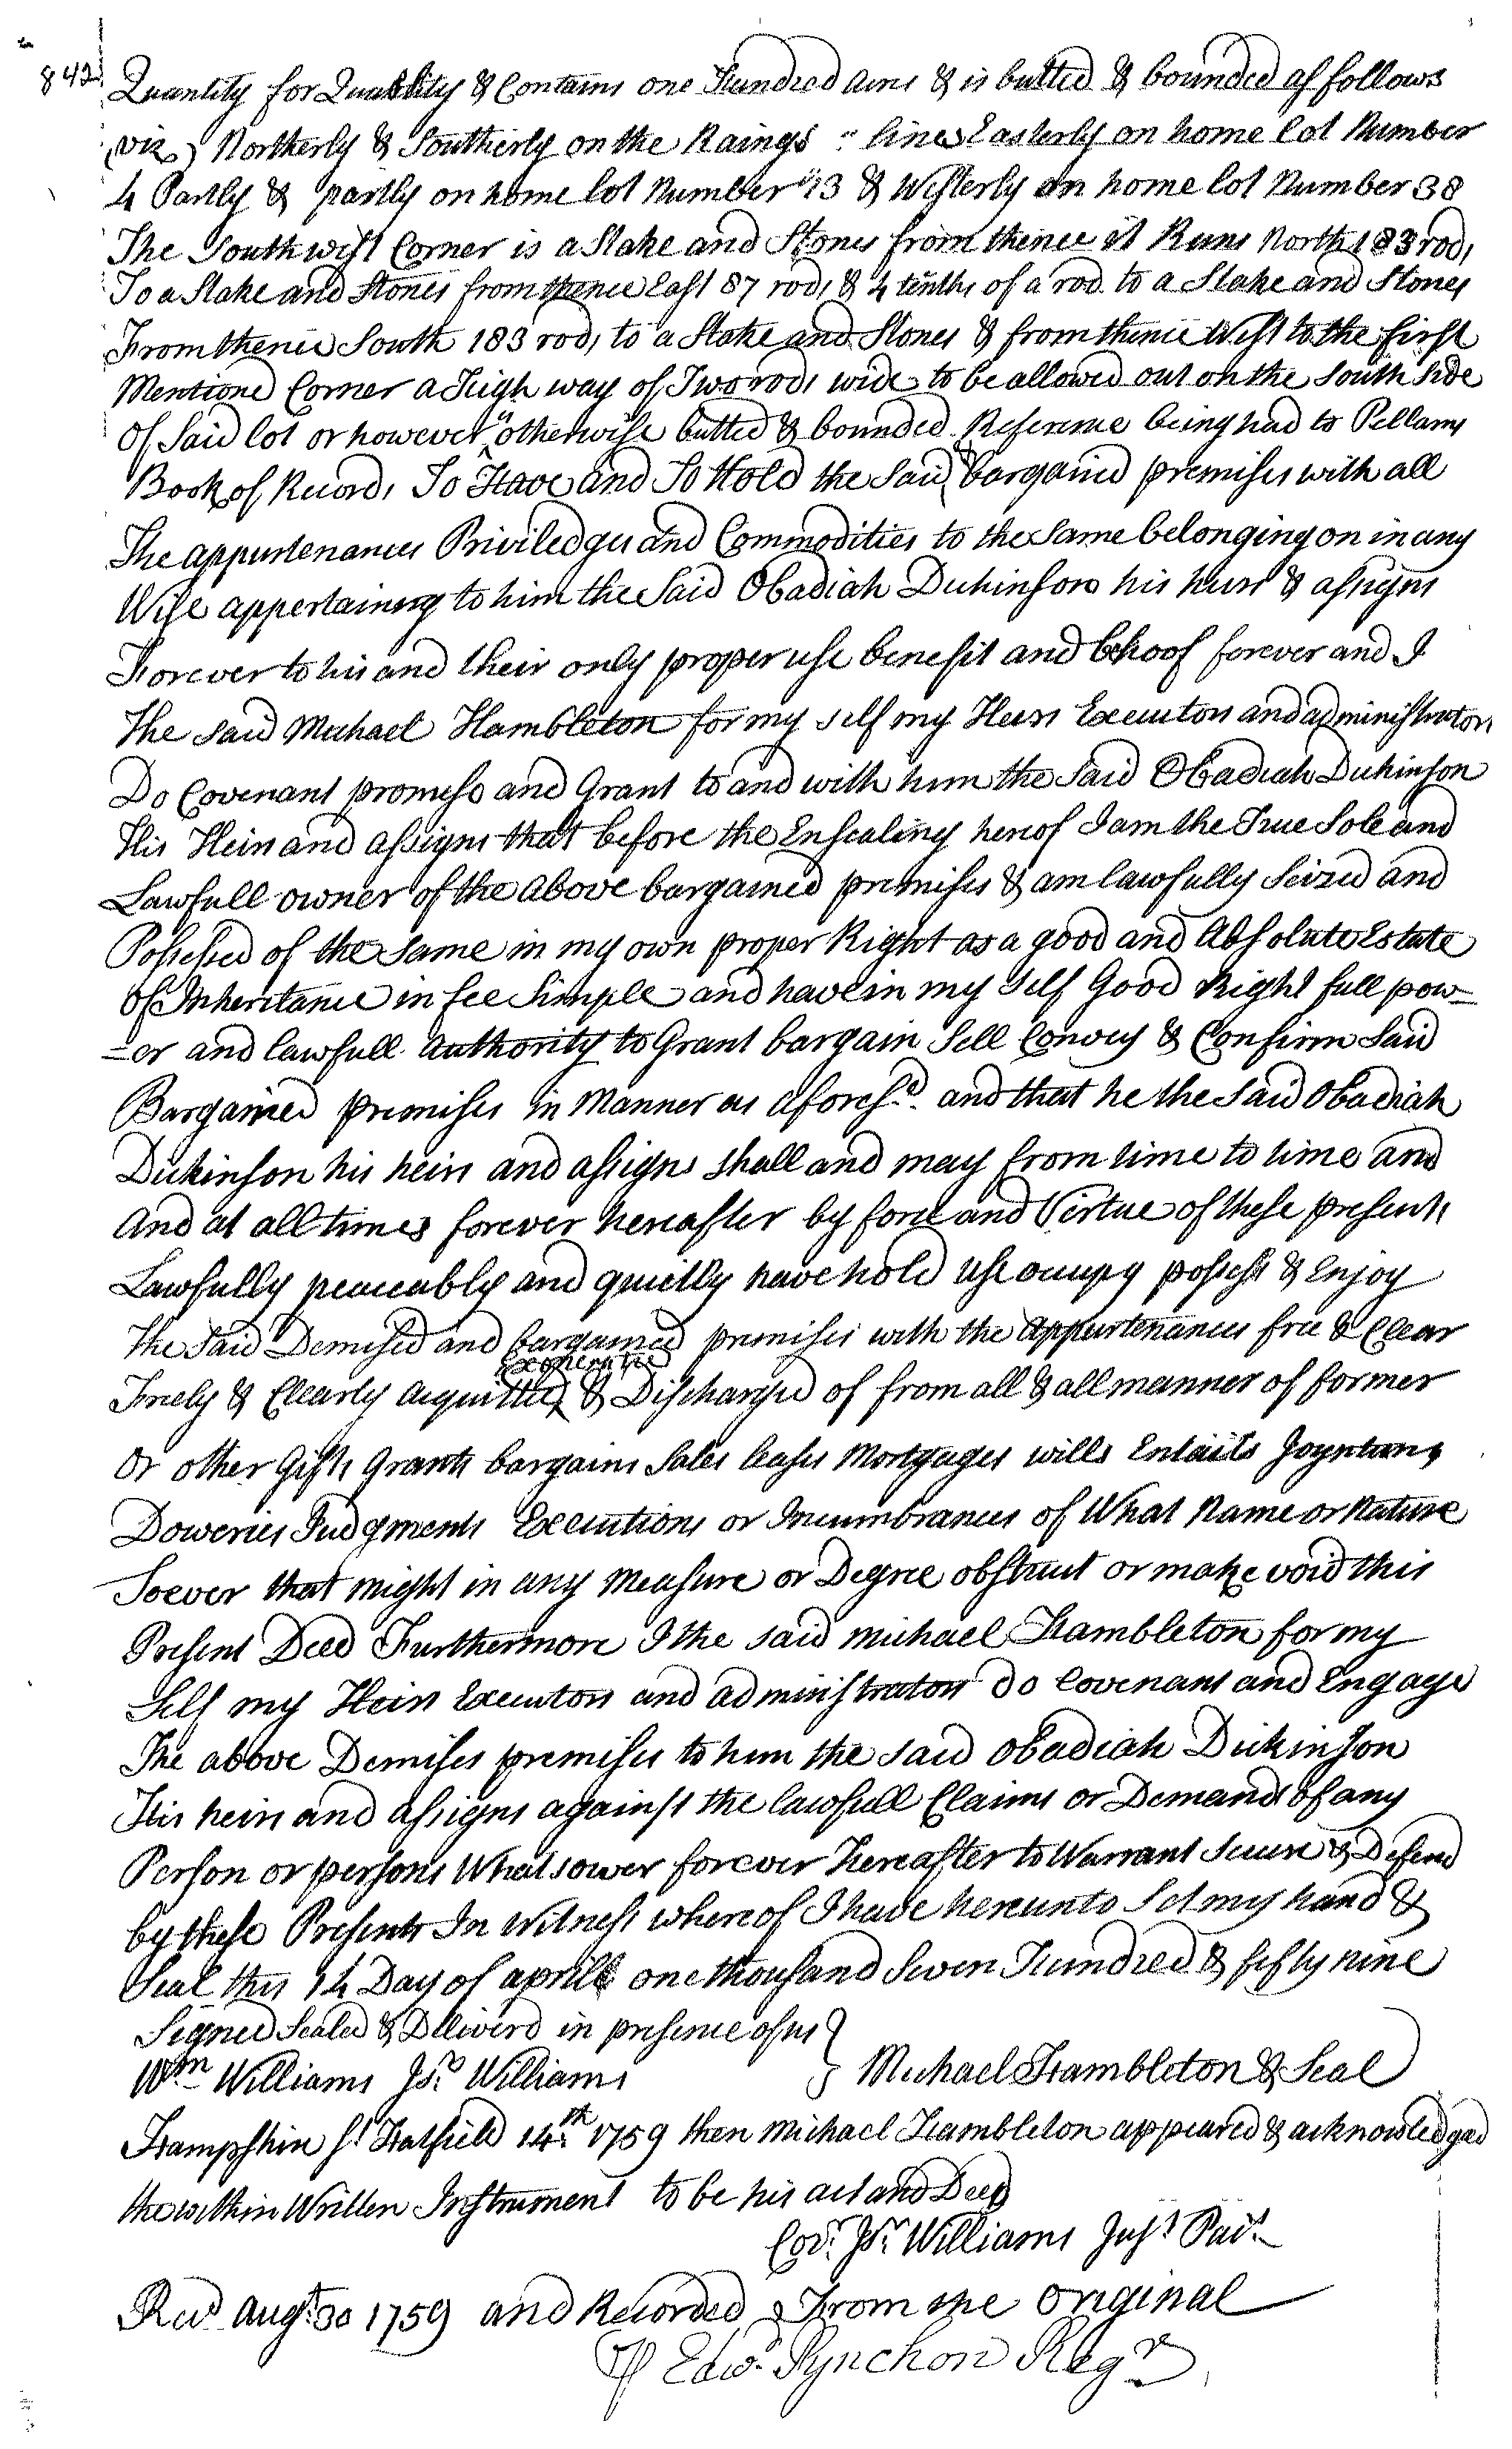 842
Quantity for Quallity & Contains one Hundred acres & is butted & bounded as follows
(viz) Northerly & Southerly on the Raings lines Easterly on home lot Number
4 Partly & partly on home lot Number 43 & Westerly on home lot Number 38
The South west Corner is a Stake and Stones from thence it Runs North 183 rods
To a Stake and Stones from thence East 87 rods & 4 tenths of a rod to a Stake and Stones
From thence South 183 rods to a Stake and Stones & from thence West to the first
Mentioned Corner a High way of Two rods wide to be allowed out on the South side
Of Said lot or however otherwise butted & bounded Reference being had to Pellams
Book of Records To Have and To Hold the Said bargained premises with all
The appurtenances Priviledges and Commodities to the Same belonging or in any
Wise appertaining to him the Said Obadiah Dickinson his heirs & assigns
Forever to his and their only proper use benefit and behoof forever and I
The said Michael Hambleton for my self my Heirs Executors and administrators
Do Covenant promess and Grant to and with him the Said Obadiah Dickinson
His Heirs and assigns that before the Ensealing hereof I am the True Sole and
Lawfull owner of the above bargained premises & am lawfully Seized and
Possessed of the same in my own proper Right as a good and Absolute Estate
Of Inheritance in fee Simple and have in my self Good Right full pow=
=er and lawfull authority to Grant bargain Sell Convey & Confirm Said
Bargained premises in Manner as afores.d and that he the Said Obadiah
Dickinson his heirs and assigns shall and may from time to time and
And at all times forever hereafter by force and Virtue of these presents
Lawfully peaceably and quietly have hold use occupy possess & Enjoy
The Said Demised and bargained premises with the appurtenances free & Clear
Exonerated
Freely & Clearly acquitted & Discharged of from all & all manner of former
Or other Gifts Grants bargains Sales leases Mortgages wills Entails Joyntures
Doweries Judgments Executions or Incumbrances of What Name or Nature
Soever that might in any Measure or Degree obstruct or make void this
Present Deed Furthermore I the said Michael Hambleton for my
Self my Heirs Executors and administrators do Covenant and Engage
The above Demises premises to him the said Obadiah Dickinson
His heirs and assigns against the lawfull Claims or Demands of any
Person or persons Whatsower forever hereafter to Warrant Secure & Defend
by these Presents In Witness whereof I have hereunto Set my hand &
Seal this 14 Day of aprill one thousand Seven Hundred & fifty nine
Signed Sealed & Deliverd in presence of us }
Wm Williams Jsr Williams } Michael Hambleton & Seal
Hampshire Ss Hatfield 14th 1759 then Michael Hambleton appeared & acknowledged
the within Written Instrument to be his act and Deed
Cor: Jsr Williams Just Pais
Recd Augt 30 1759 and Recorded From the Original
P Edwd Pynchon Regr